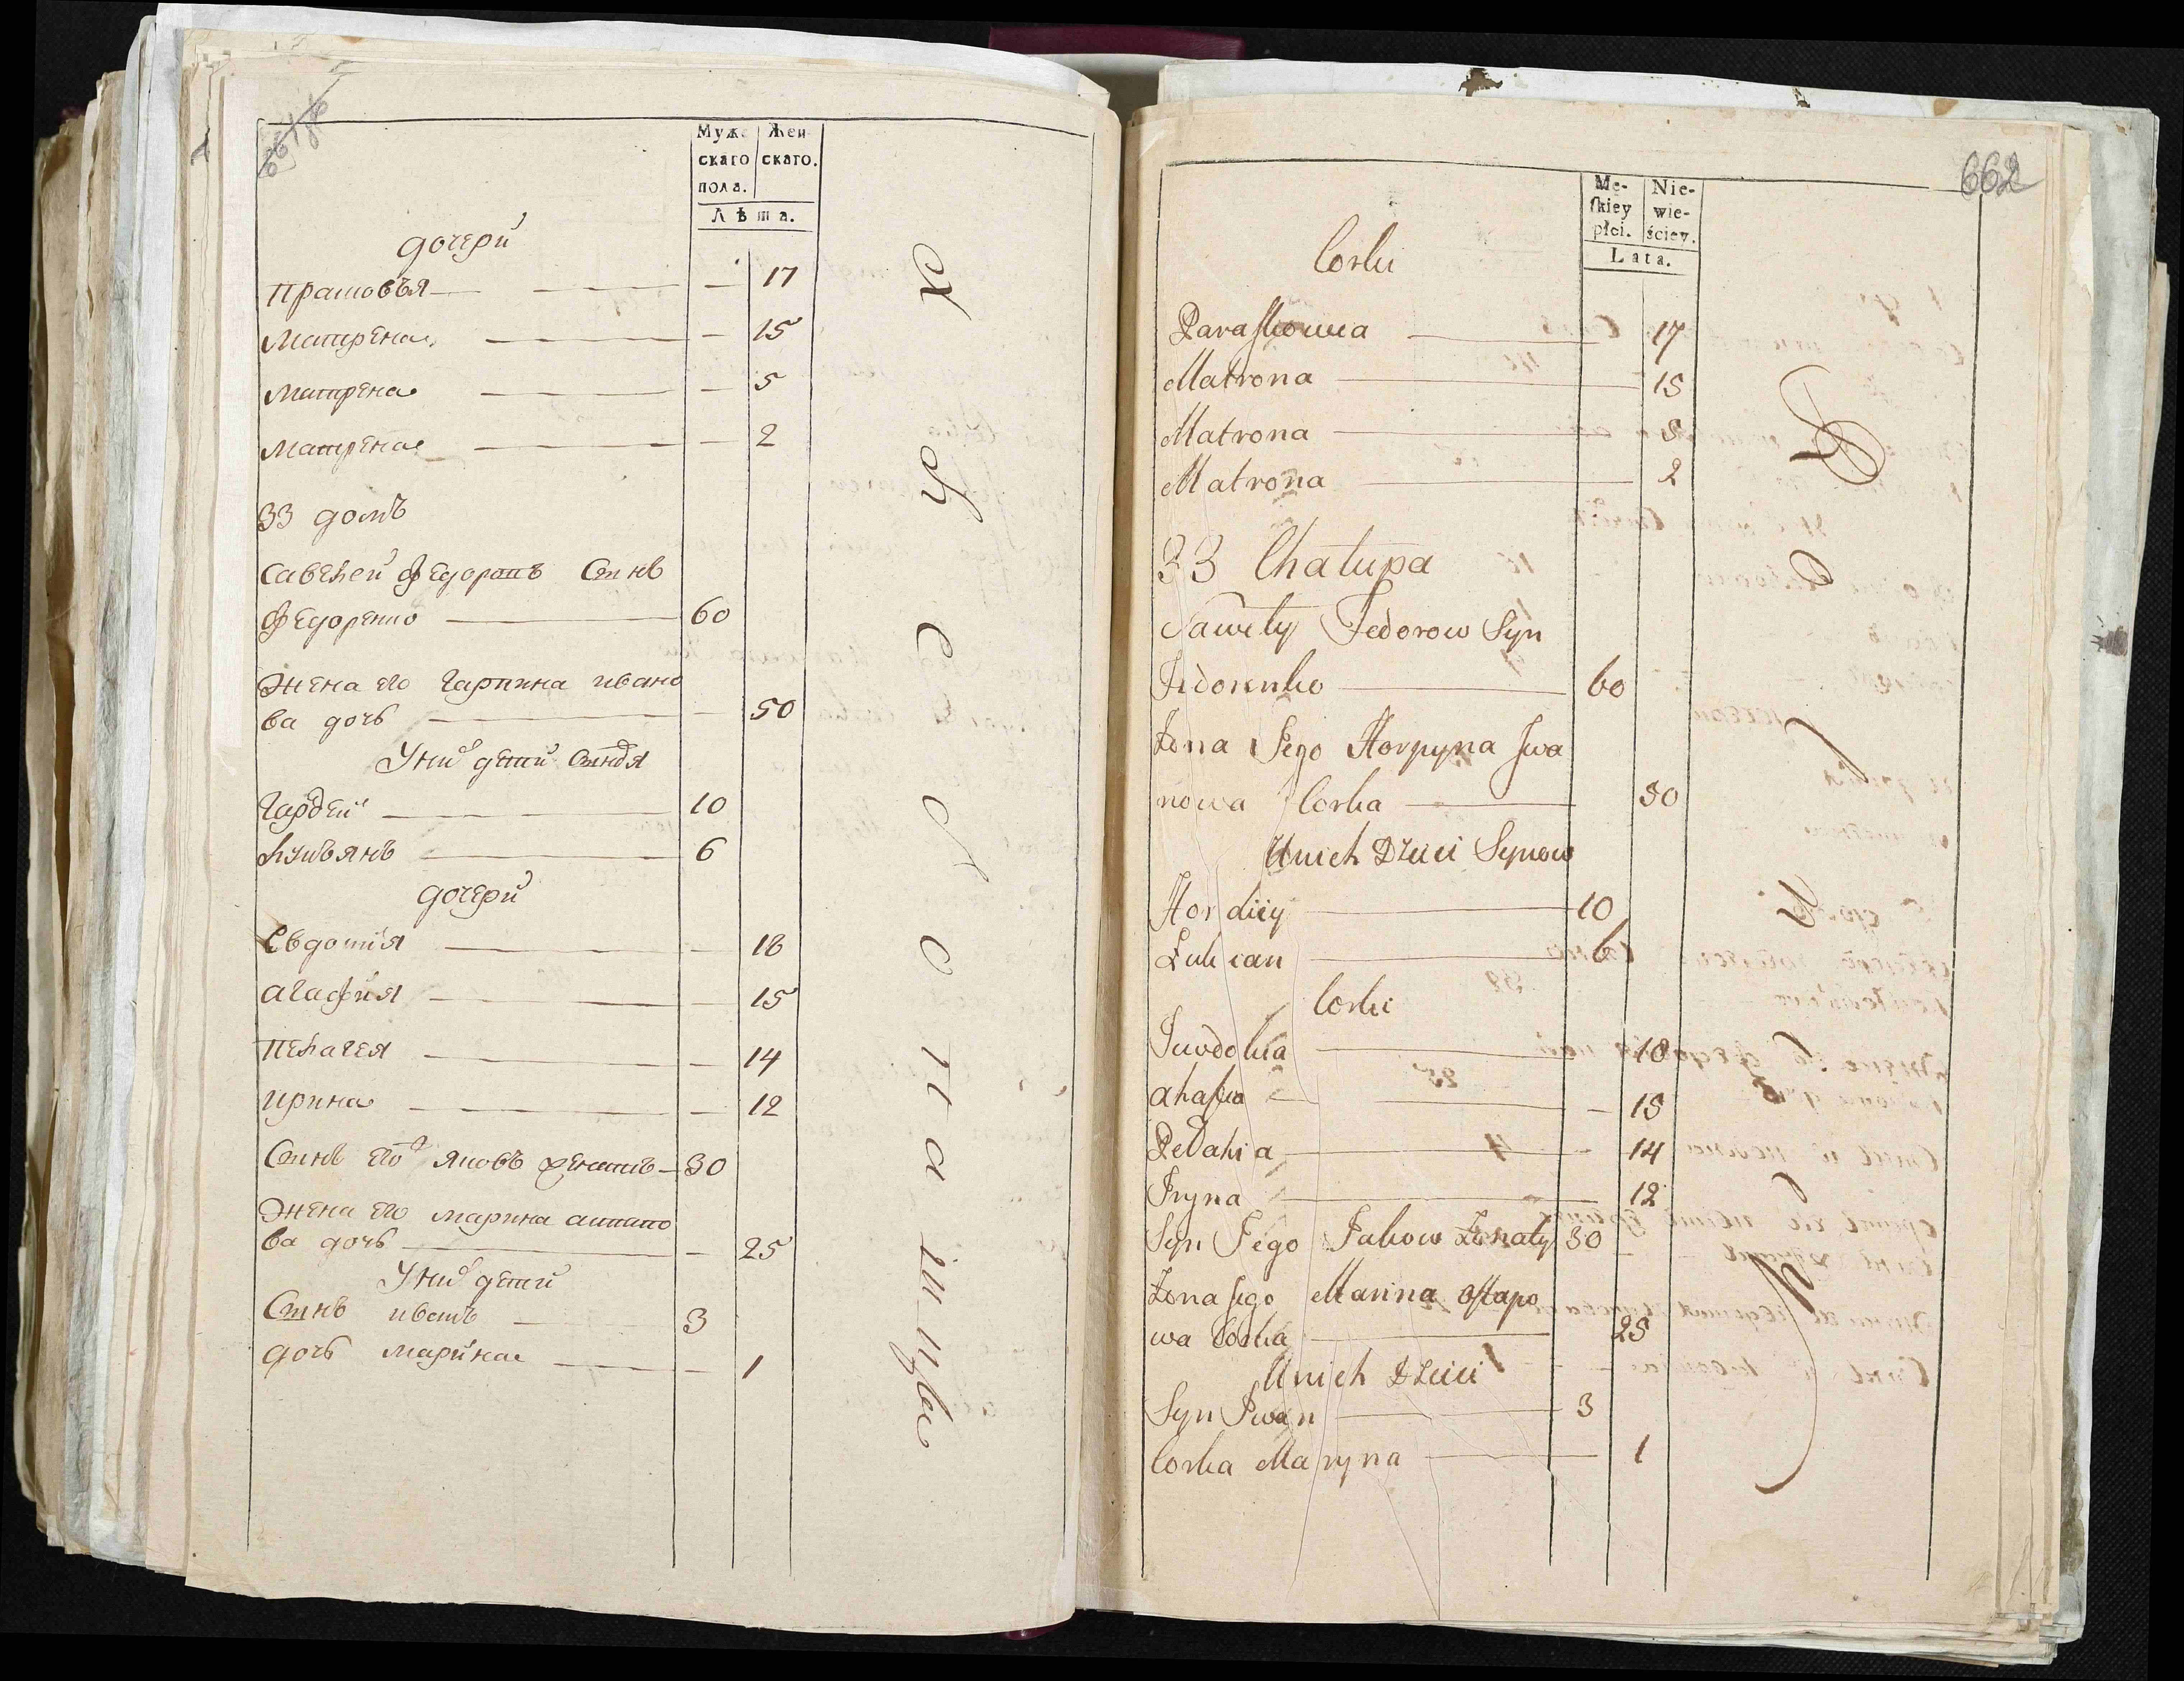 661 об
Муж- Жен-
скаго скаго.
пола.
Лѣта.
дочери
прасковья — — — 17
матрена — — — 15
матрена — — — 5
матрена — — — 2
33 домъ
савелей федоровъ сынъ
федоренко — 60
жена его гарпина ивано
ва дочь — — 50
У них дети сыновья
гардей — 10
лукьянъ — 6
дочери
Евдокия — — 18
агафия — — 15
пелагея — — 14
ирина — — 12
сынъ его яковъ женатъ — 30
жена его марина астапо
ва дочь — — 25
У них дети
сынъ иванъ — 3
дочь марина — — 1
662
Mę- Nie-
skiey wie-
płci. ściey.
Lata.
Corki
Paraskowia — 17
Matrona — 15
Matrona — 5
Matrona — 2
33 Chałupa
Sawely Fedorow Syn
Fedorenko — 60
Zona Jego Horpyna Jwa
nowa Corka — 50
U nich Dzieci Synow
Hordiiy — 10
Lukian — 6
Corki
Juwdokia — 18
ahafia — — 15
Pelahia — 14
Iryna — 12
Syn Jego Jakow Zonaty 30
Zona Jego Marina Ostapo
wa Corka — 25
U nich Dzieci
Syn Iwan — 3
Corka Maryna — 1